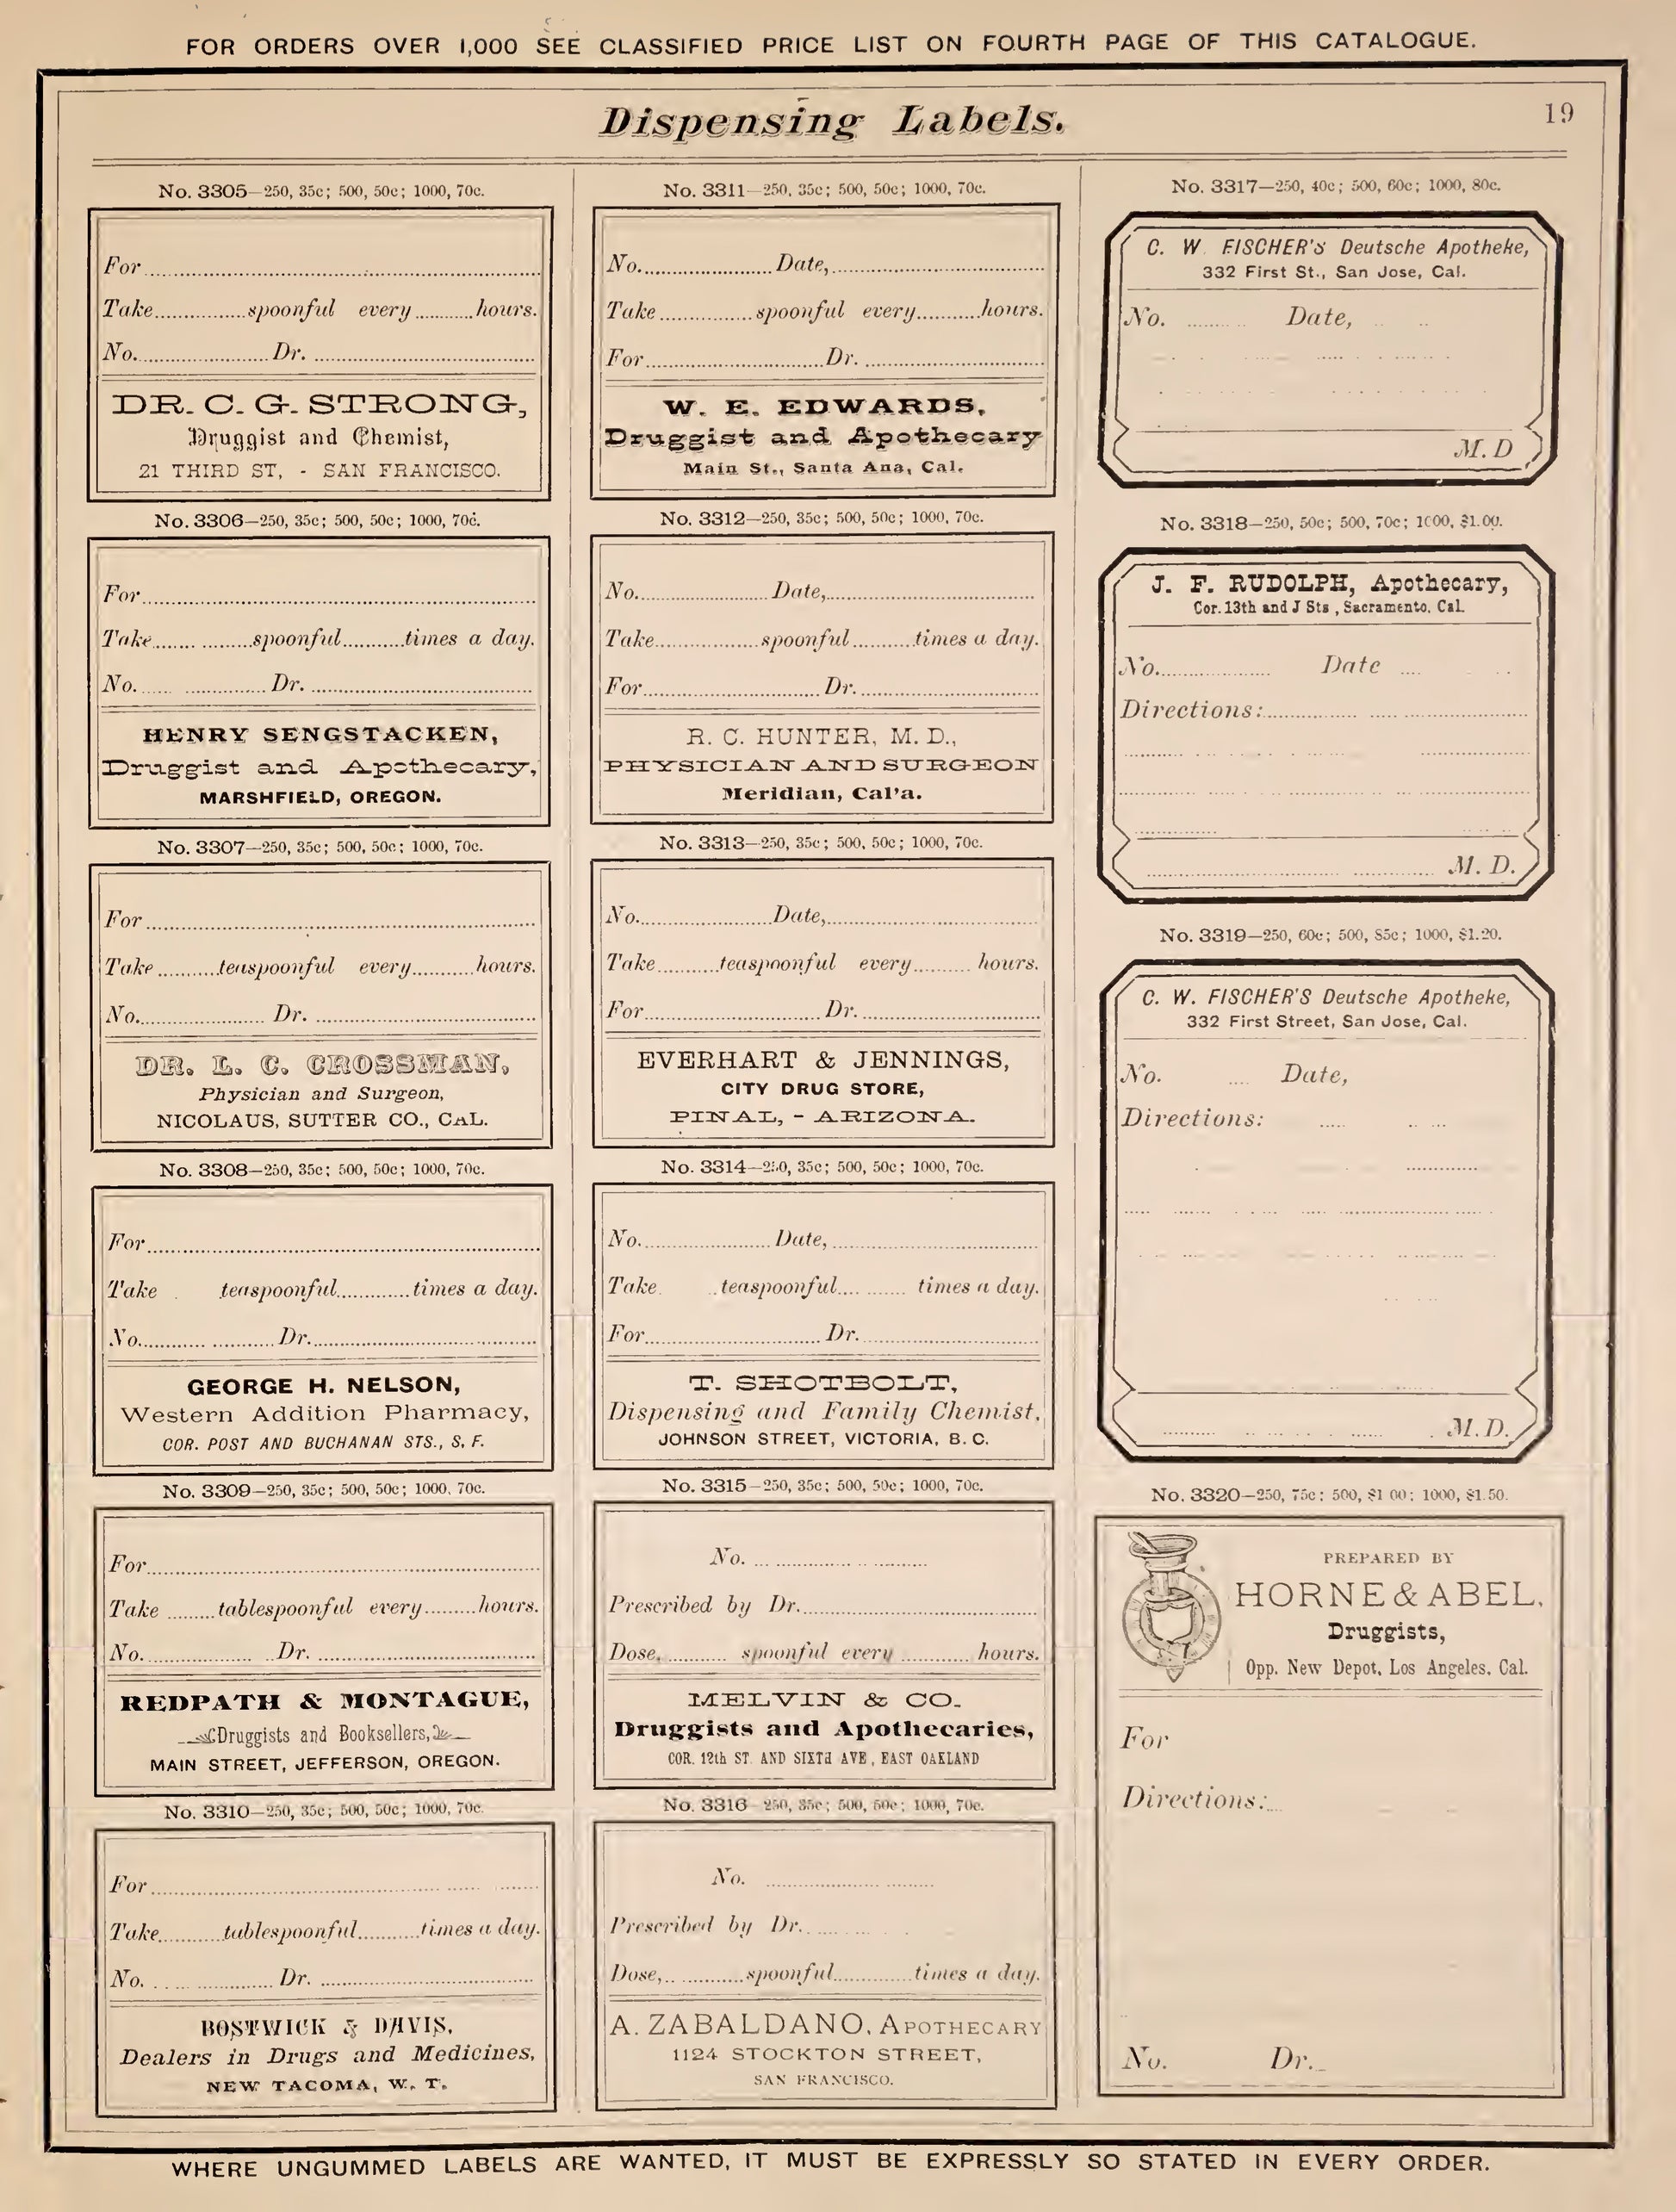 FOR ORDERS OVER 1,000 SEE CLASSIFIED PRICE LIST ON FOURTH PAGE OF THIS CATALOGUE.
Dispensing Labels.
19
No. 3305—250, 35c; 500, 50c; 1000, 70c.
For
Take spoonful every hours.
No. Dr.
DR. C. G. STRONG,
Druggist and Chemist,
21 THIRD ST, - SAN FRANCISCO.
No. 3306—250, 35c; 500, 50c; 1000, 70c.
For
Take spoonful times a day.
No. Dr.
HENRY SENGSTACKEN,
Druggist and Apothecary,
MARSHFIELD, OREGON.
No. 3307—250, 35c; 500, 50c; 1000, 70c.
For
Take teaspoonful every hours.
No. Dr.
DR. L. C. CROSSMAN,
Physician and Surgeon,
NICOLAUS, SUTTER CO., CAL.
No. 3308—250, 35c; 500, 50c; 1000, 70c.
For
Take teaspoonful times a day.
No. Dr.
GEORGE H. NELSON,
Western Addition Pharmacy,
COR. POST AND BUCHANAN STS., S. F.
No. 3309—250, 35c; 500, 50c; 1000, 70c.
For
Take tablespoonful every hours.
No. Dr.
REDPATH & MONTAGUE,
Druggists and Booksellers,
MAIN STREET, JEFFERSON, OREGON.
No. 3310—250, 35c; 500, 50c; 1000, 70c.
For
Take tablespoonful times a day.
No. Dr.
BOSTWICK & DAVIS,
Dealers in Drugs and Medicines,
NEW TACOMA, W. T.
No. 3311—250, 35c; 500, 50c; 1000, 70c.
No. Date,
Take spoonful every hours.
For Dr.
W. E. EDWARDS,
Druggist and Apothecary
Main St., Santa Ana, Cal.
No. 3312—250, 35c; 500, 50c; 1000, 70c.
No. Date,
Take spoonful times a day.
For Dr.
R. C. HUNTER, M. D.,
PHYSICIAN AND SURGEON
Meridian, Cal'a.
No. 3313—250, 35c; 500, 50c; 1000, 70c.
No. Date,
Take teaspoonful every hours.
For Dr.
EVERHART & JENNINGS,
CITY DRUG STORE,
PINAL, - ARIZONA.
No. 3314—250, 35c; 500, 50c; 1000, 70c.
No. Date,
Take teaspoonful times a day.
For Dr.
T. SHOTBOLT,
Dispensing and Family Chemist,
JOHNSON STREET, VICTORIA, B. C.
No. 3315—250, 35c; 500, 50c; 1000, 70c.
No.
Prescribed by Dr.
Dose, spoonful every hours.
MELVIN & CO.
Druggists and Apothecaries,
COR. 12th ST. AND SIXTH AVE, EAST OAKLAND
No. 3316—250, 35c; 500, 50c; 1000, 70c.
No.
Prescribed by Dr.
Dose, spoonful times a day.
A. ZABALDANO, APOTHECARY
1124 STOCKTON STREET,
SAN FRANCISCO.
No. 3317—250, 40c; 500, 60c; 1000, 80c.
C. W. FISCHER'S Deutsche Apotheke,
332 First St., San Jose, Cal.
No. Date,
M. D
No. 3318—250, 50c; 500, 70c; 1000, $1.00.
J. F. RUDOLPH, Apothecary,
Cor. 13th and J Sts, Sacramento, Cal.
No. Date
Directions:
M. D.
No. 3319—250, 60c; 500, 85c; 1000, $1.20.
C. W. FISCHER'S Deutsche Apotheke,
332 First Street, San Jose, Cal.
No. Date,
Directions:
M. D.
No. 3320—250, 75c; 500, $1 00; 1000, $1.50.
PREPARED BY
HORNE & ABEL,
Druggists,
Opp. New Depot, Los Angeles, Cal.
For
Directions:
No. Dr.
WHERE UNGUMMED LABELS ARE WANTED, IT MUST BE EXPRESSLY SO STATED IN EVERY ORDER.